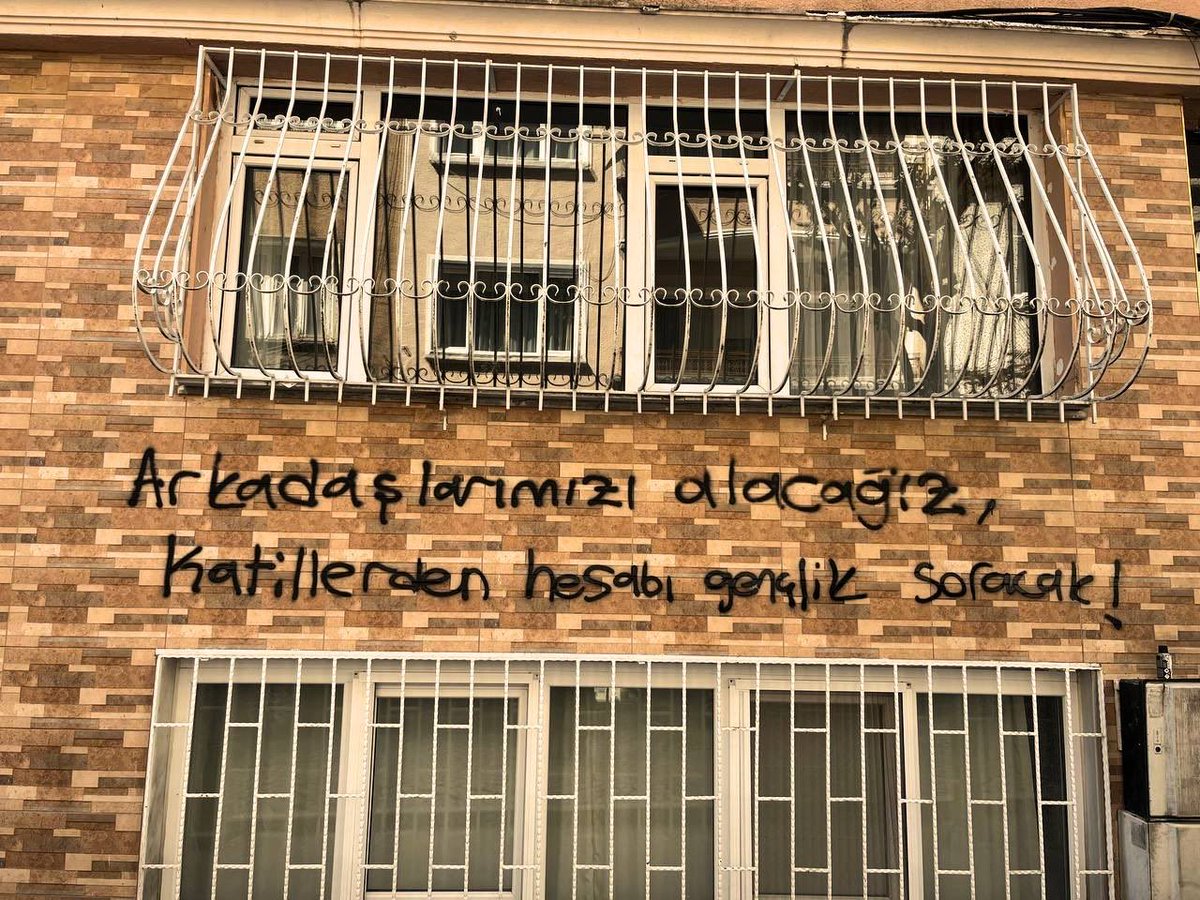 Arkadaşlarımızı alacağız,
Katillerden hesabı gençlik soracak!